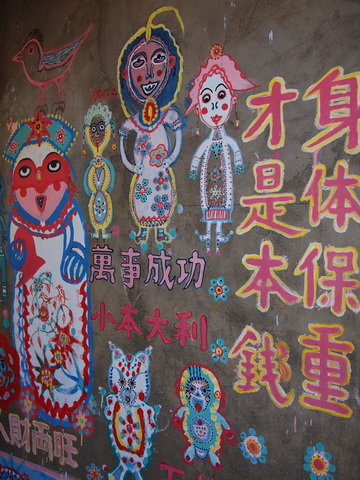 身体保重
才是本錢
萬事成功
小本大利
財両旺